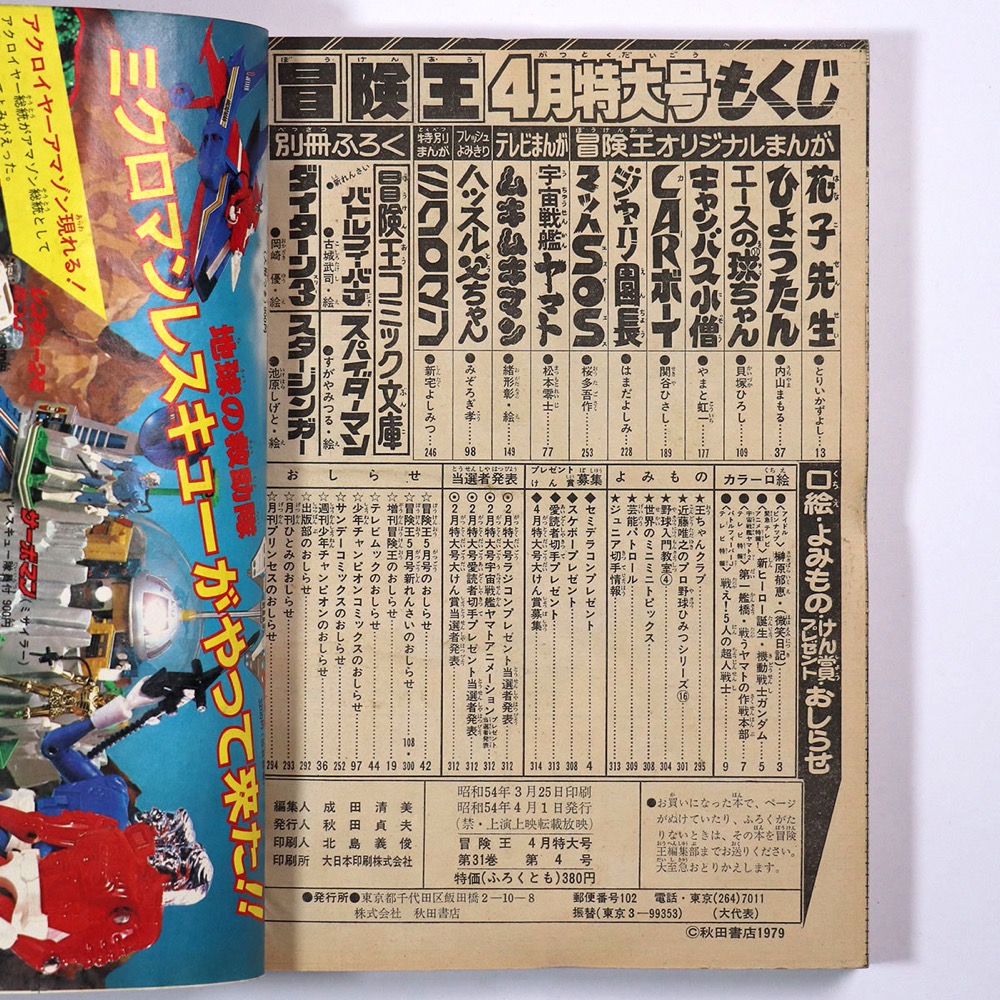 アクロイヤーアマゾン現れる!
アクロイヤー総統がアマゾン総統として
よみがえった。
ミクロマンレスキューがやって来た!!
地球の救助隊
冒険王 4月特大号 もくじ
冒険王オリジナルまんが
花子先生 ●とりいかずよし 13
ひょうたん ●内山まもる 37
エースの球ちゃん ●貝塚ひろし 109
キャンバス小僧 ●やまと虹一 177
CARボーイ ●関谷ひさし 189
ジャリ園長 ●はまだよしみ 228
マッハSOS ●桜多吾作 253
テレビまんが
宇宙戦艦ヤマト ●松本零士 77
ムキムキマン ●緒形彰・絵 149
フレッシュよみきり
ハッスル父ちゃん ●みぞろぎ孝 98
特別まんが
ミクロマン ●新宅よしみつ 246
別冊ふろく
冒険王コミック文庫
●新れんさい
バトルフィーバーJ ●古城武司・絵
スパイダーマン ●すがやみつる・絵
ダイターン3 ●岡崎優・絵
スタージンガー ●池原しげと・絵
口絵・よみもの・けん賞・プレゼント・おしらせ
カラー口絵
●アイドルピンナップ 榊原郁恵・(微笑日記) 3
新ヒーロー誕生 機動戦士ガンダム 5
第一艦橋・戦うヤマトの作戦本部 7
戦え!5人の超人戦士 9
よみもの
★王ちゃんクラブ 295
★近藤唯之のプロ野球ひみつシリーズ⑯ 301
★野球入門教室④ 304
★世界のミニミニトピックス 308
★芸能パトロール 309
★ジュニア切手情報 313
プレゼントけん賞募集
◆セミデラコンプレゼント 4
◆スケボープレゼント 308
◆愛読者切手プレゼント 313
◆4月特大号大けん賞募集 314
当選者発表
◎2月特大号ラジコンプレゼント当選者発表 312
◎2月特大号宇宙戦艦ヤマトアニメーションプレゼント当選者発表 312
◎2月特大号愛読者切手プレゼント当選者発表 312
◎2月特大号大けん賞当選者発表 312
おしらせ
☆冒険王5月号のおしらせ 42
☆冒険王5月号新れんさいのおしらせ 108・300
☆増刊冒険王のおしらせ 19
☆テレビムックのおしらせ 44
☆少年チャンピオンコミックスのおしらせ 97
☆サンデーコミックスのおしらせ 252
☆週刊少年チャンピオンのおしらせ 36
☆出版部のおしらせ 292
☆月刊ひとみのおしらせ 293
☆月刊プリンセスのおしらせ 294
編集人 成田清美
発行人 秋田貞夫
印刷人 北島義俊
印刷所 大日本印刷株式会社
昭和54年3月25日印刷
昭和54年4月1日発行
(禁・上演上映転載放映)
冒険王 4月特大号
第31巻 第4号
特価(ふろくとも)380円
●お買いになった本で、ページ
がぬけていたり、ふろくがた
りないときは、その本を冒険
王編集部までお送りください。
大至急おとりかえします。
●発行所●東京都千代田区飯田橋2-10-8
株式会社 秋田書店
郵便番号102 電話・東京(264)7011
振替(東京3-99353) (大代表)
©秋田書店1979